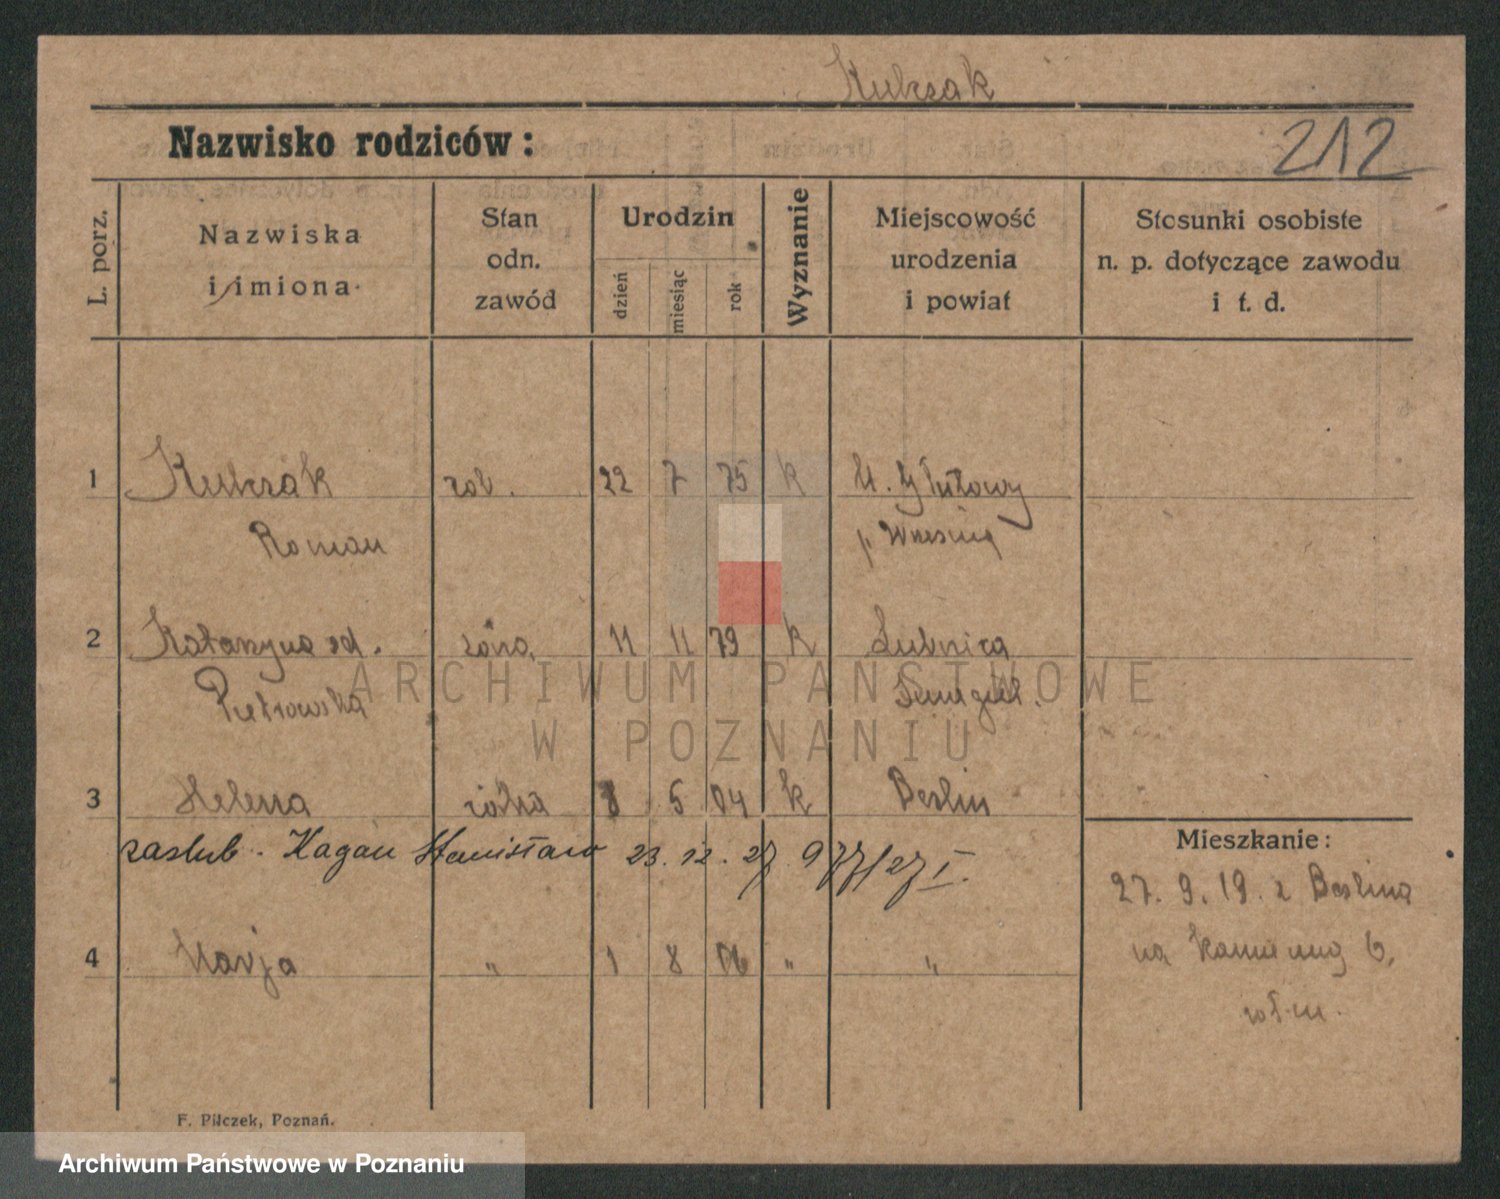 Kubzak
Nazwisko rodziców:
212
L. porz.
Nazwiska
i imiona
Stan
odn.
zawód
Urodzin
dzień
miesiąc
rok
Wyznanie
Miejscowość
urodzenia
i powiat
Stosunki osobiste
n. p. dotyczące zawodu
i t. d.
1 Kubzak rob. 22 7 75 k
Roman p. Września
2 Katarzyna od. żona 11 11 79 k Lubnica
Pietrowska Szmigiel.
ARCHIWUM PAŃSTWOWE
W POZNANIU
3 Helena córka 8 5 04 k Berlin
zaślub. Kagan Stanisław 23.12.27 977/27 I.
Mieszkanie:
27. 9. 19. z Berlina
4 Marja " 1 8 06 " "
na 6,
F. Pilczek, Poznań.
Archiwum Państwowe w Poznaniu